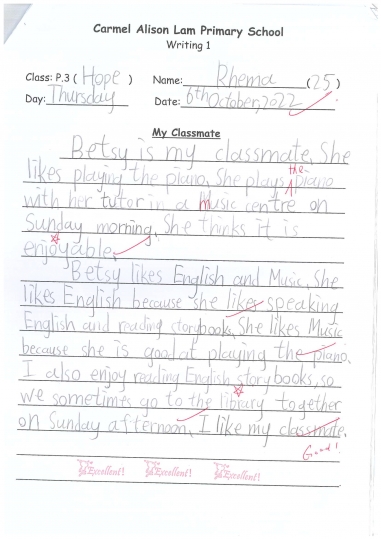 Carmel Alison Lam Primary School
Writing 1
Class: P.3 ( Hope ) Name: Rhema (25)
Day: Thursday Date: 6th October, 2022
My Classmate
Betsy is my classmate. She
likes playing the piano. She plays the piano
with her tutor in a music centre on
Sunday morning. She thinks it is
enjoyable.
Betsy likes English and Music. She
likes English because she likes speaking
English and reading storybooks. She likes Music
because she is good at playing the piano.
I also enjoy reading English story books, so
we sometimes go to the library together
on Sunday afternoon. I like my classmate.
Good!
Excellent! Excellent! Excellent!